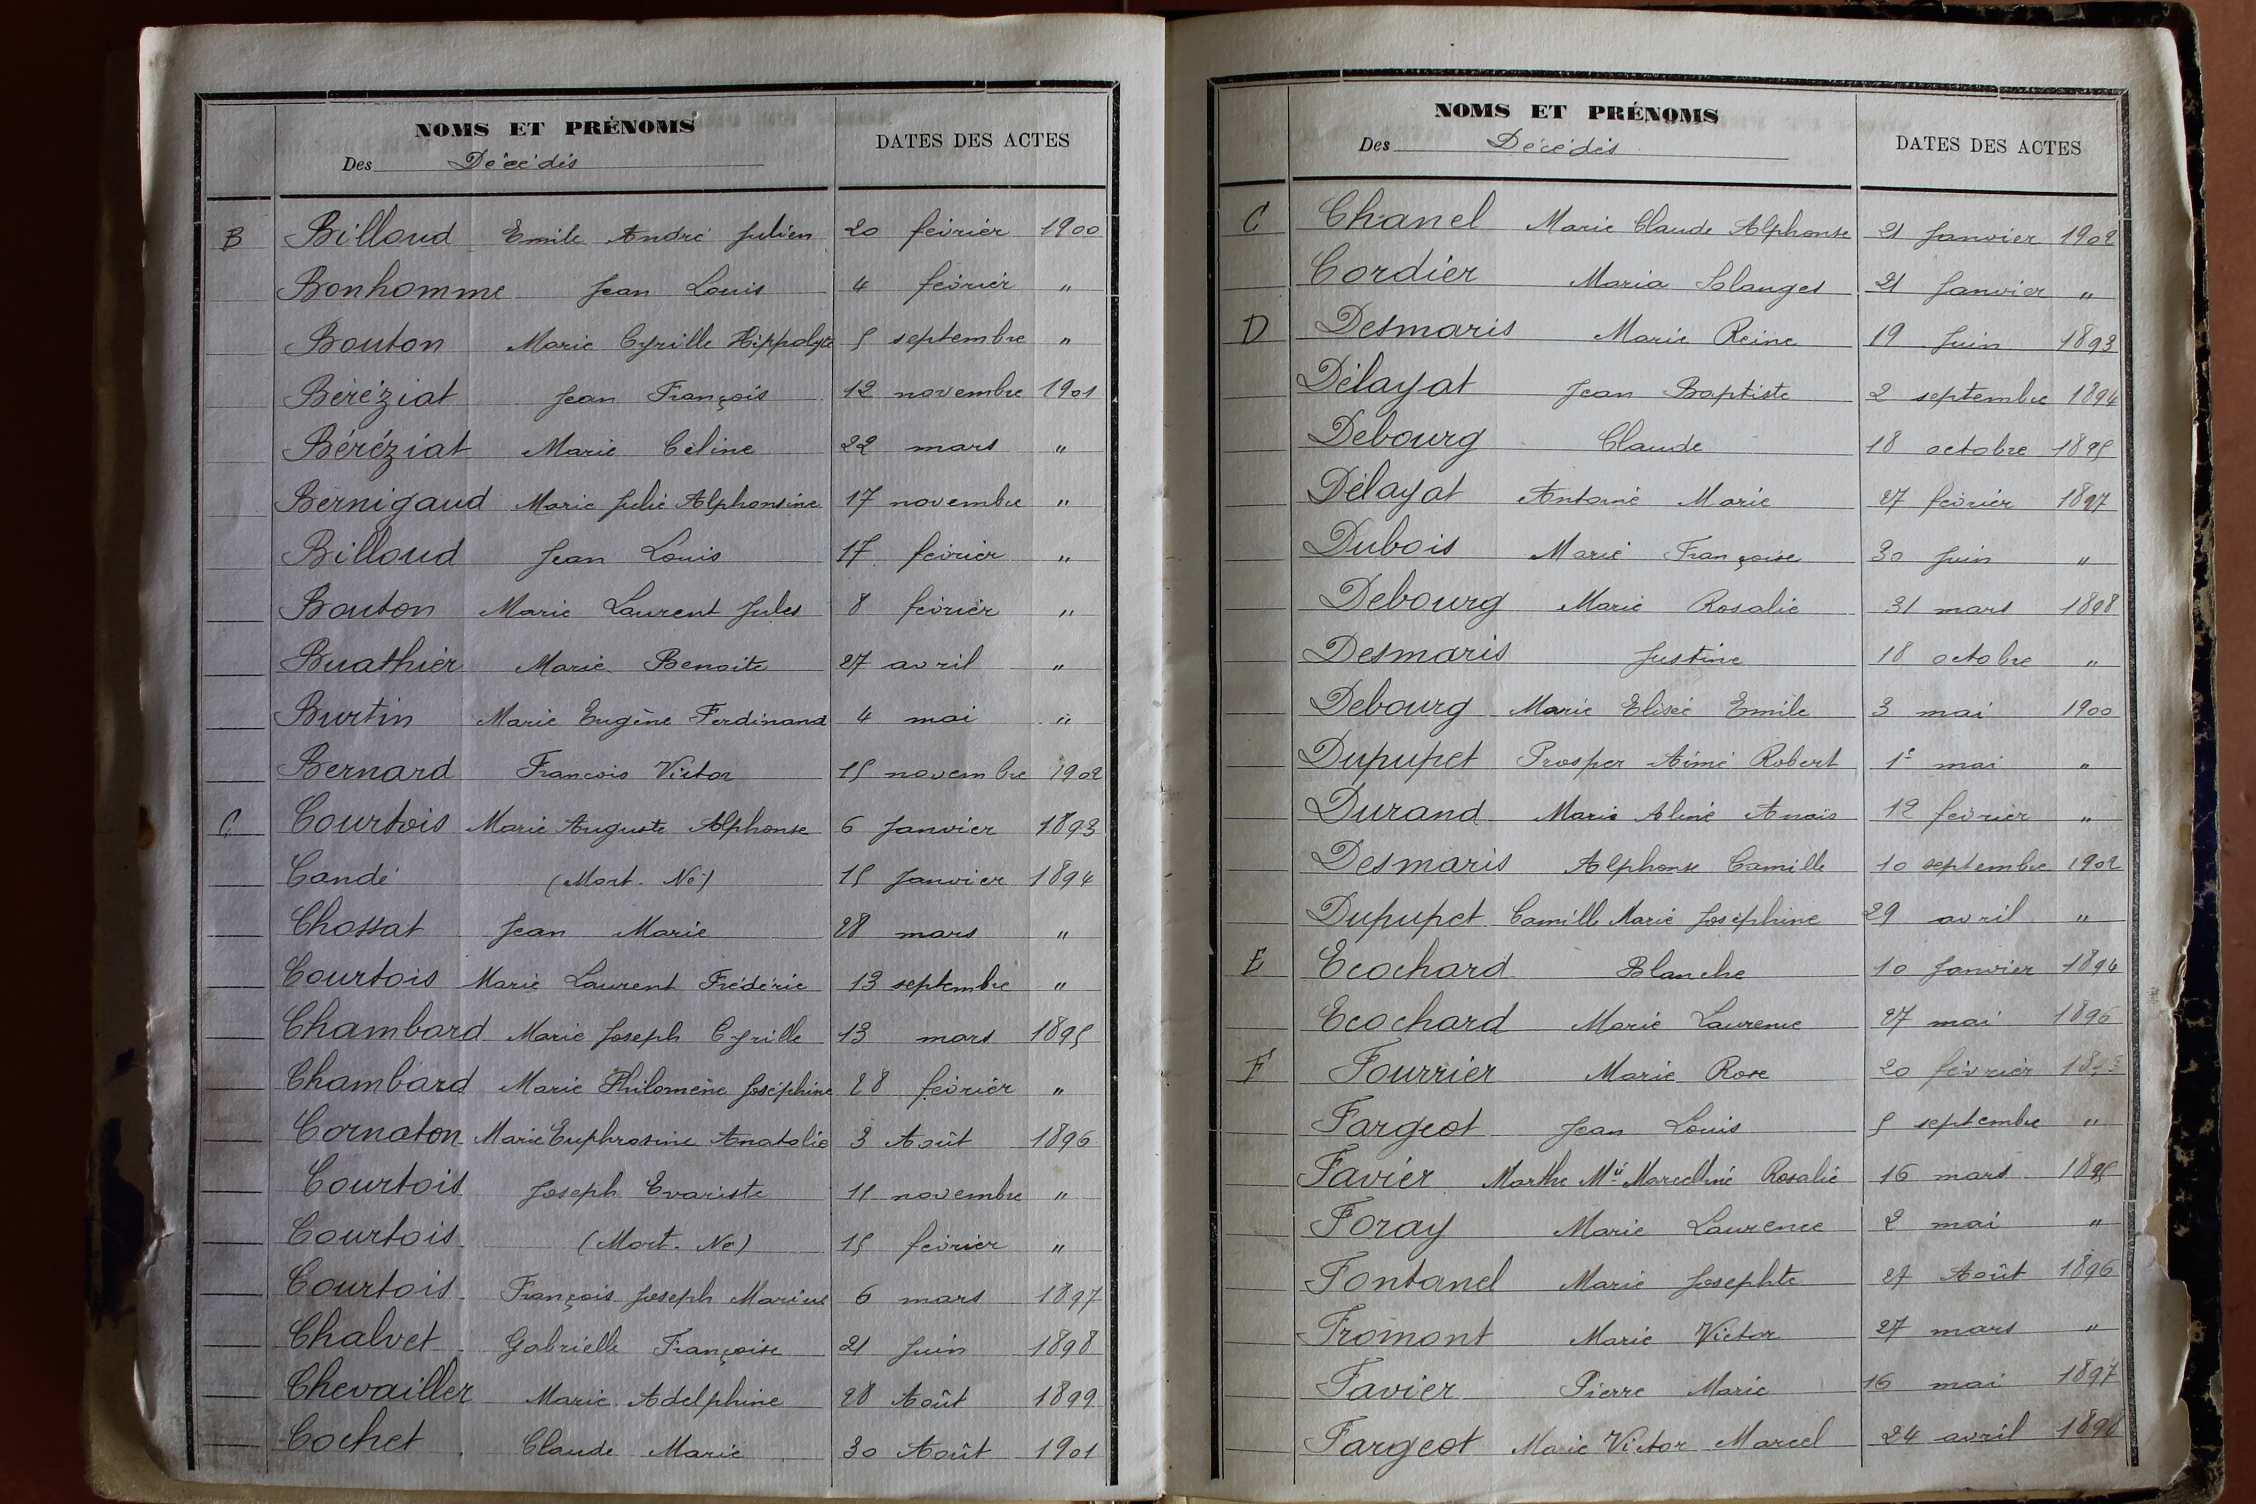 NOMS ET PRÉNOMS
Des Décédés
DATES DES ACTES
B Billoud Emile André Julien 20 février 1900
Bonhomme Jean Louis 4 février "
Bouton Marie Cyrille Hippolyte 5 septembre "
Béréziat Jean François 12 novembre 1901
Béréziat Marie Céline 22 mars "
Bernigaud Marie Julie Alphonsine 17 novembre "
Billoud Jean Louis 17 février "
Bouton Marie Laurent Jules 8 février "
Buathier Marie Benoite 27 avril "
Burtin Marie Eugène Ferdinand 4 mai "
Bernard François Victor 15 novembre 1902
C Courtois Marie Auguste Alphonse 6 Janvier 1893
Candé (Mort-Né) 15 Janvier 1894
Chossat Jean Marie 28 mars "
Courtois Marie Laurent Frédéric 13 septembre "
Chambard Marie Joseph Cyrille 13 mars 1895
Chambard Marie Philomène Joséphine 28 février "
Cornaton Marie Euphrosine Anatolie 3 Août 1896
Courtois Joseph Evariste 11 novembre "
Courtois (Mort-Né) 15 février "
Courtois François Joseph Marius 6 mars 1897
Chalvet Gabrielle Françoise 21 Juin 1898
Chevailler Marie Adelphine 28 Août 1899
Cochet Claude Marie 30 Août 1901
NOMS ET PRÉNOMS
Des Décédés
DATES DES ACTES
C Chanel Marie Claude Alphonse 21 Janvier 1902
Cordier Maria Solanges 21 Janvier "
D Desmaris Marie Reine 19 Juin 1893
Délayat Jean Baptiste 2 septembre 1894
Debourg Claude 18 octobre 1895
Délayat Antoine Marie 27 février 1897
Dubois Marie Françoise 30 Juin "
Debourg Marie Rosalie 31 mars 1898
Desmaris Justine 18 octobre "
Debourg Marie Elisée Emile 3 mai 1900
Dupupet Prosper Aimé Robert 1er mai "
Durand Marie Aline Anaïs 12 février "
Desmaris Alphonse Camille 10 septembre 1902
Dupupet Camille Marie Joséphine 29 avril "
E Ecochard Blanche 10 Janvier 1894
Ecochard Marie Laurence 27 mai 1896
F Fourrier Marie Rose 20 février 1893
Fargeot Jean Louis 5 septembre "
Favier Marthe Mie Marcelline Rosalie 16 mars 1895
Foray Marie Laurence 2 mai "
Fontanel Marie Josephte 27 Août 1896
Fromont Marie Victor 27 mars "
Favier Pierre Marie 16 mai 1897
Fargeot Marie Victor Marcel 24 avril 1898